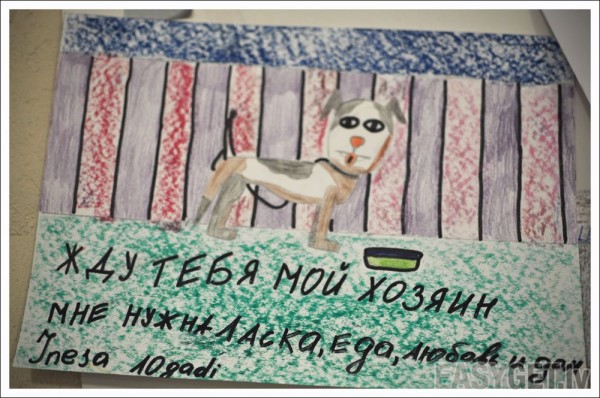 ЖДУ ТЕБЯ МОЙ ХОЗЯИН
МНЕ НУЖНА ЛАСКА, ЕДА, ЛЮБОВЬ И ДОМ
Inesa 10gadi
EASYGET.lv